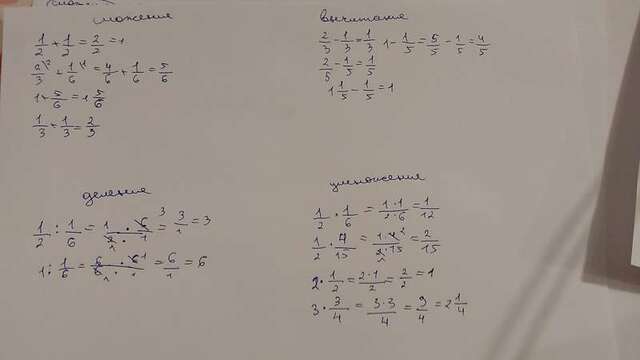 сложение
1/2 + 1/2 = 2/2 = 1
2/3 + 1/6 = 4/6 + 1/6 = 5/6
1 + 5/6 = 1 5/6
1/3 + 1/3 = 2/3
вычитание
2/3 - 1/3 = 1/3 1 - 1/5 = 5/5 - 1/5 = 4/5
2/5 - 1/5 = 1/5
1 1/5 - 1/5 = 1
деление
1/2 : 1/6 = 1 · 6 / 2 · 1 = 3/1 = 3
1 : 1/6 = 6/1 = 6
умножение
1/2 · 1/6 = 1·1/2·6 = 1/12
2 · 1/2 = 2·1/2 = 2/2 = 1
3 · 3/4 = 3·3/4 = 9/4 = 2 1/4